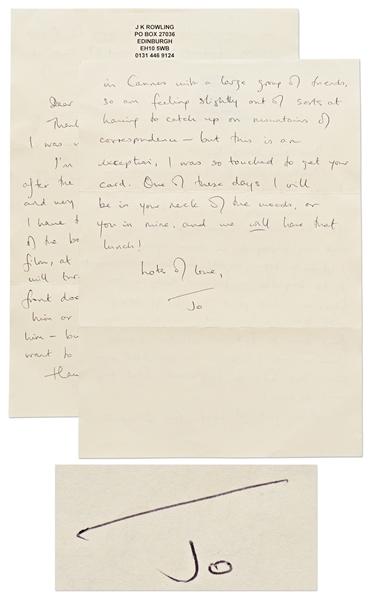 J K ROWLING
PO BOX 27036
EDINBURGH
EH10 5WB
0131 446 9124
Dear
I was
I'm
after the
and very
I have
of the
film, at
will
front
him or
him – bu
want to
in Cannes with a large group of friends,
so am feeling slightly out of sorts at
having to catch up on mountains of
correspondence – but this is an
exception, I was so touched to get your
card. One of these days I will
be in your neck of the woods, or
you in mine, and we will have that
lunch!
Lots of love,
Jo
Jo